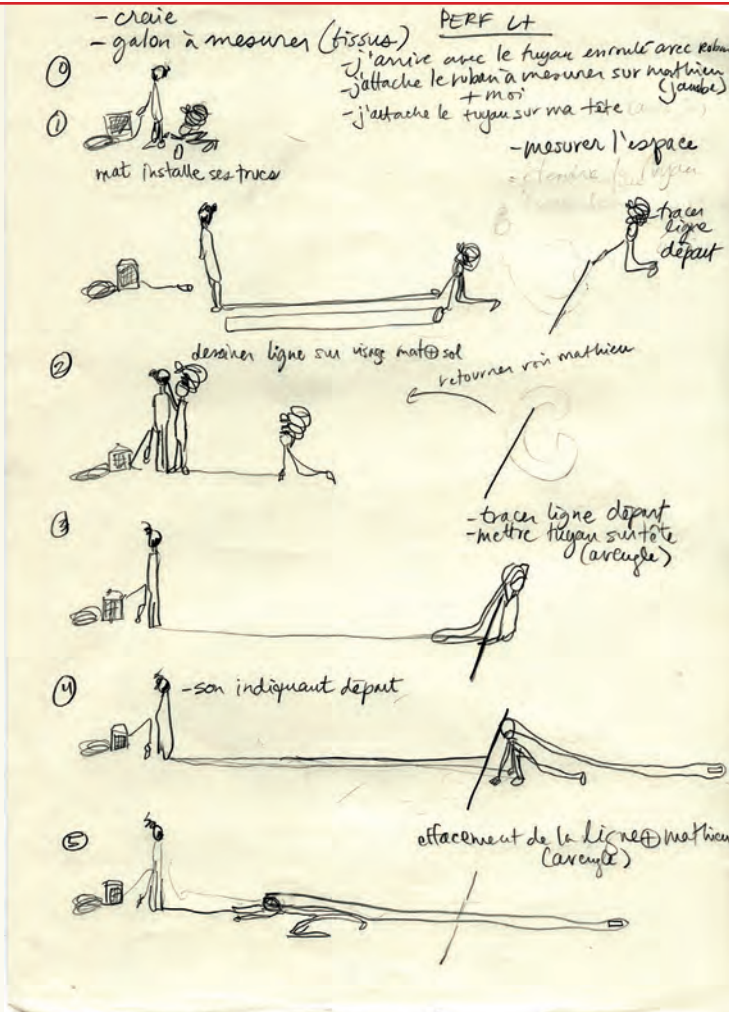 - craie
- galon à mesurer (tissus)
PERF L+
- j'arrive avec le tuyau enroulé avec ruban
- j'attache le ruban à mesurer sur mathieu
(jambe)
+ moi
- j'attache le tuyau sur ma tête
0
1
mat installe ses trucs
- mesurer l'espace
- étendre le tuyau
- tracer
ligne
départ
2
dessiner ligne sur visage mat + sol
retourner voir mathieu
3
- tracer ligne départ
- mettre tuyau sur tête
(aveugle)
4
- son indiquant départ
5
effacement de la ligne + mathieu
(aveugle)